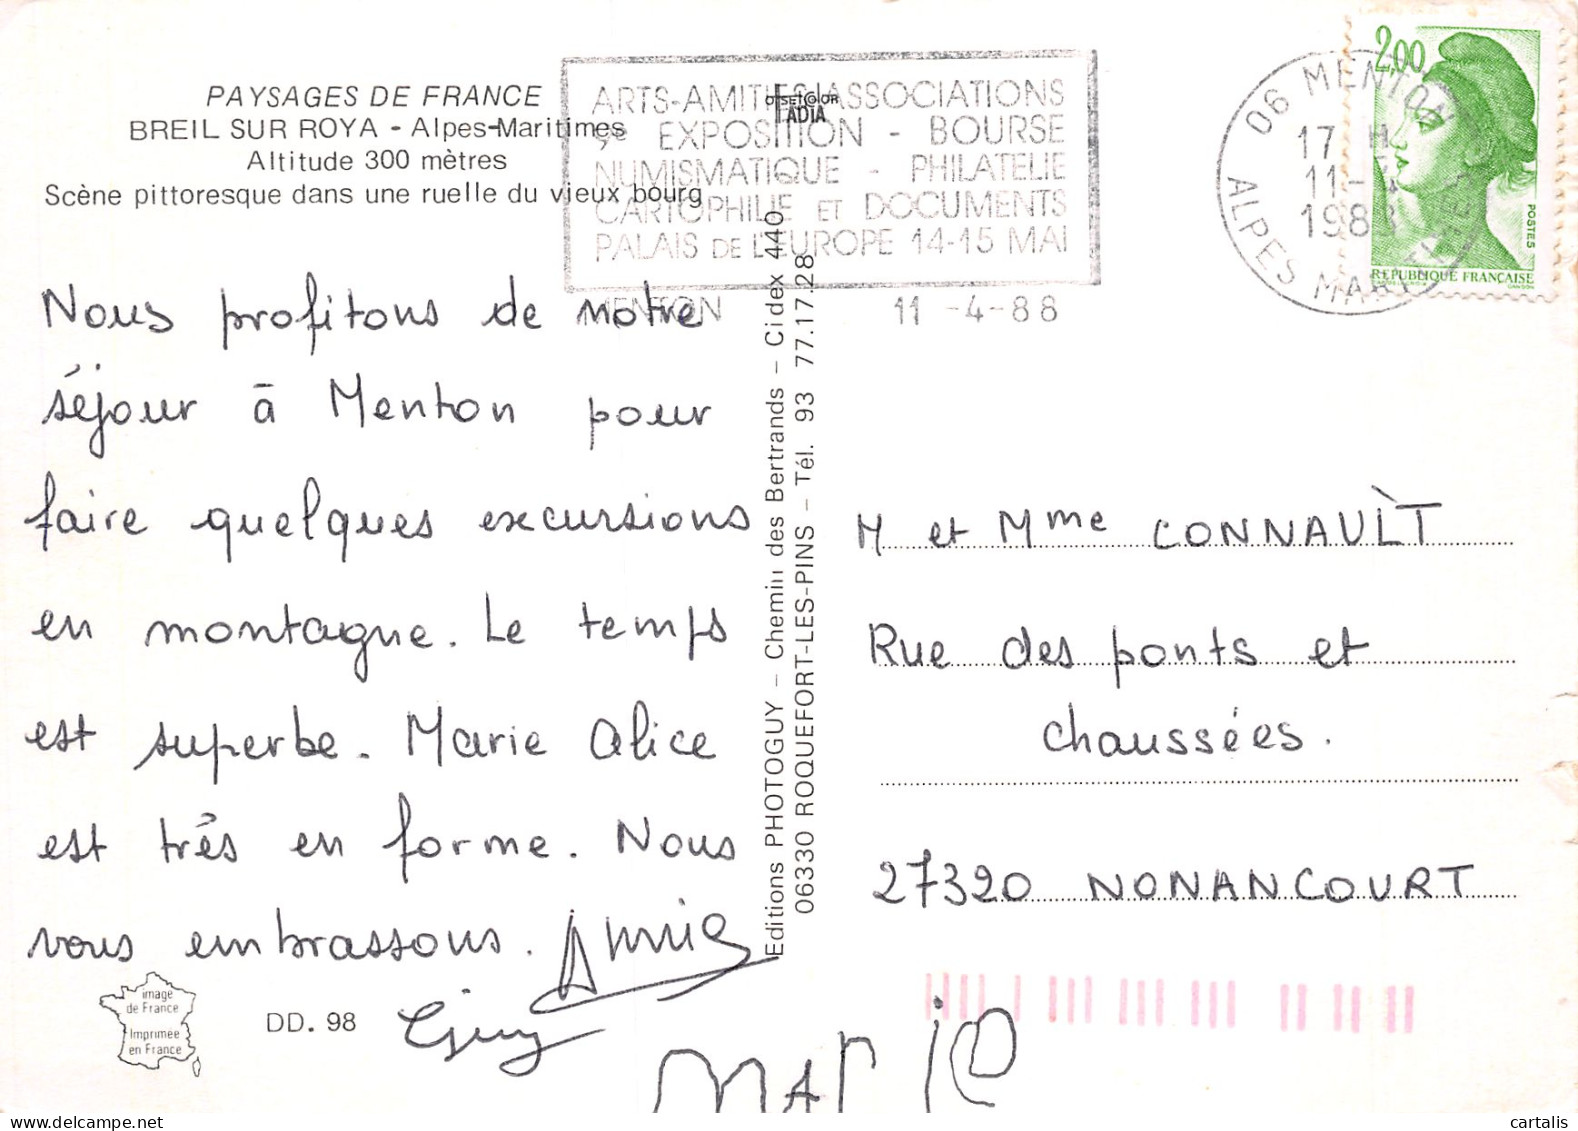 PAYSAGES DE FRANCE
BREIL SUR ROYA - Alpes-Maritimes
Altitude 300 mètres
Scène pittoresque dans une ruelle du vieux bourg
ARTS-AMITIES ASSOCIATIONS
9e EXPOSITION - BOURSE
NUMISMATIQUE - PHILATELIE
CARTOPHILIE ET DOCUMENTS
PALAIS DE L'EUROPE 14-15 MAI
MENTON 11 -4-88
OFFSETCOLOR
FADIA
06 MENTON
17 H
11-4
1988
ALPES MARITIMES
2,00
POSTES
REPUBLIQUE FRANÇAISE
Nous profitons de notre
séjour à Menton pour
faire quelques excursions
en montagne. Le temps
est superbe. Marie Alice
est très en forme. Nous
vous embrassons. Annie
Guy
MARIE
Editions PHOTOGUY - Chemin des Bertrands - Cidex 440
06330 ROQUEFORT-LES-PINS - Tél. 93 77.17.28
M et Mme CONNAULT
Rue des ponts et
chaussées.
27320 NONANCOURT
image
de France
Imprimée
en France
DD. 98
cartalis